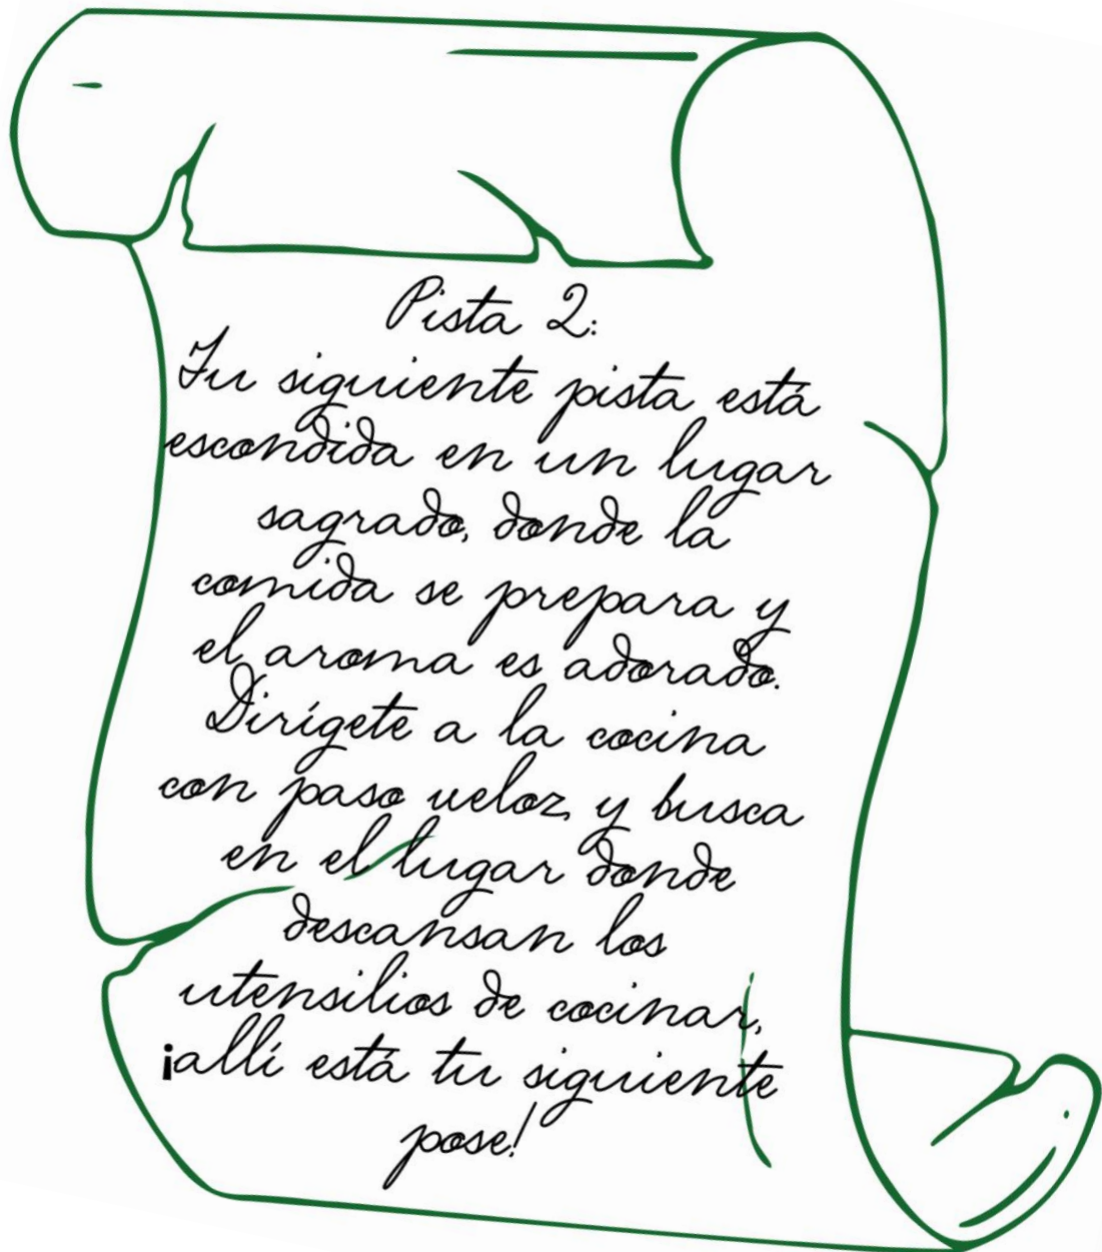 Pista 2:
Tu siguiente pista está
escondida en un lugar
sagrado, donde la
comida se prepara y
el aroma es adorado.
Dirígete a la cocina
con paso veloz, y busca
en el lugar donde
descansan los
utensilios de cocinar,
¡allí está tu siguiente
pose!